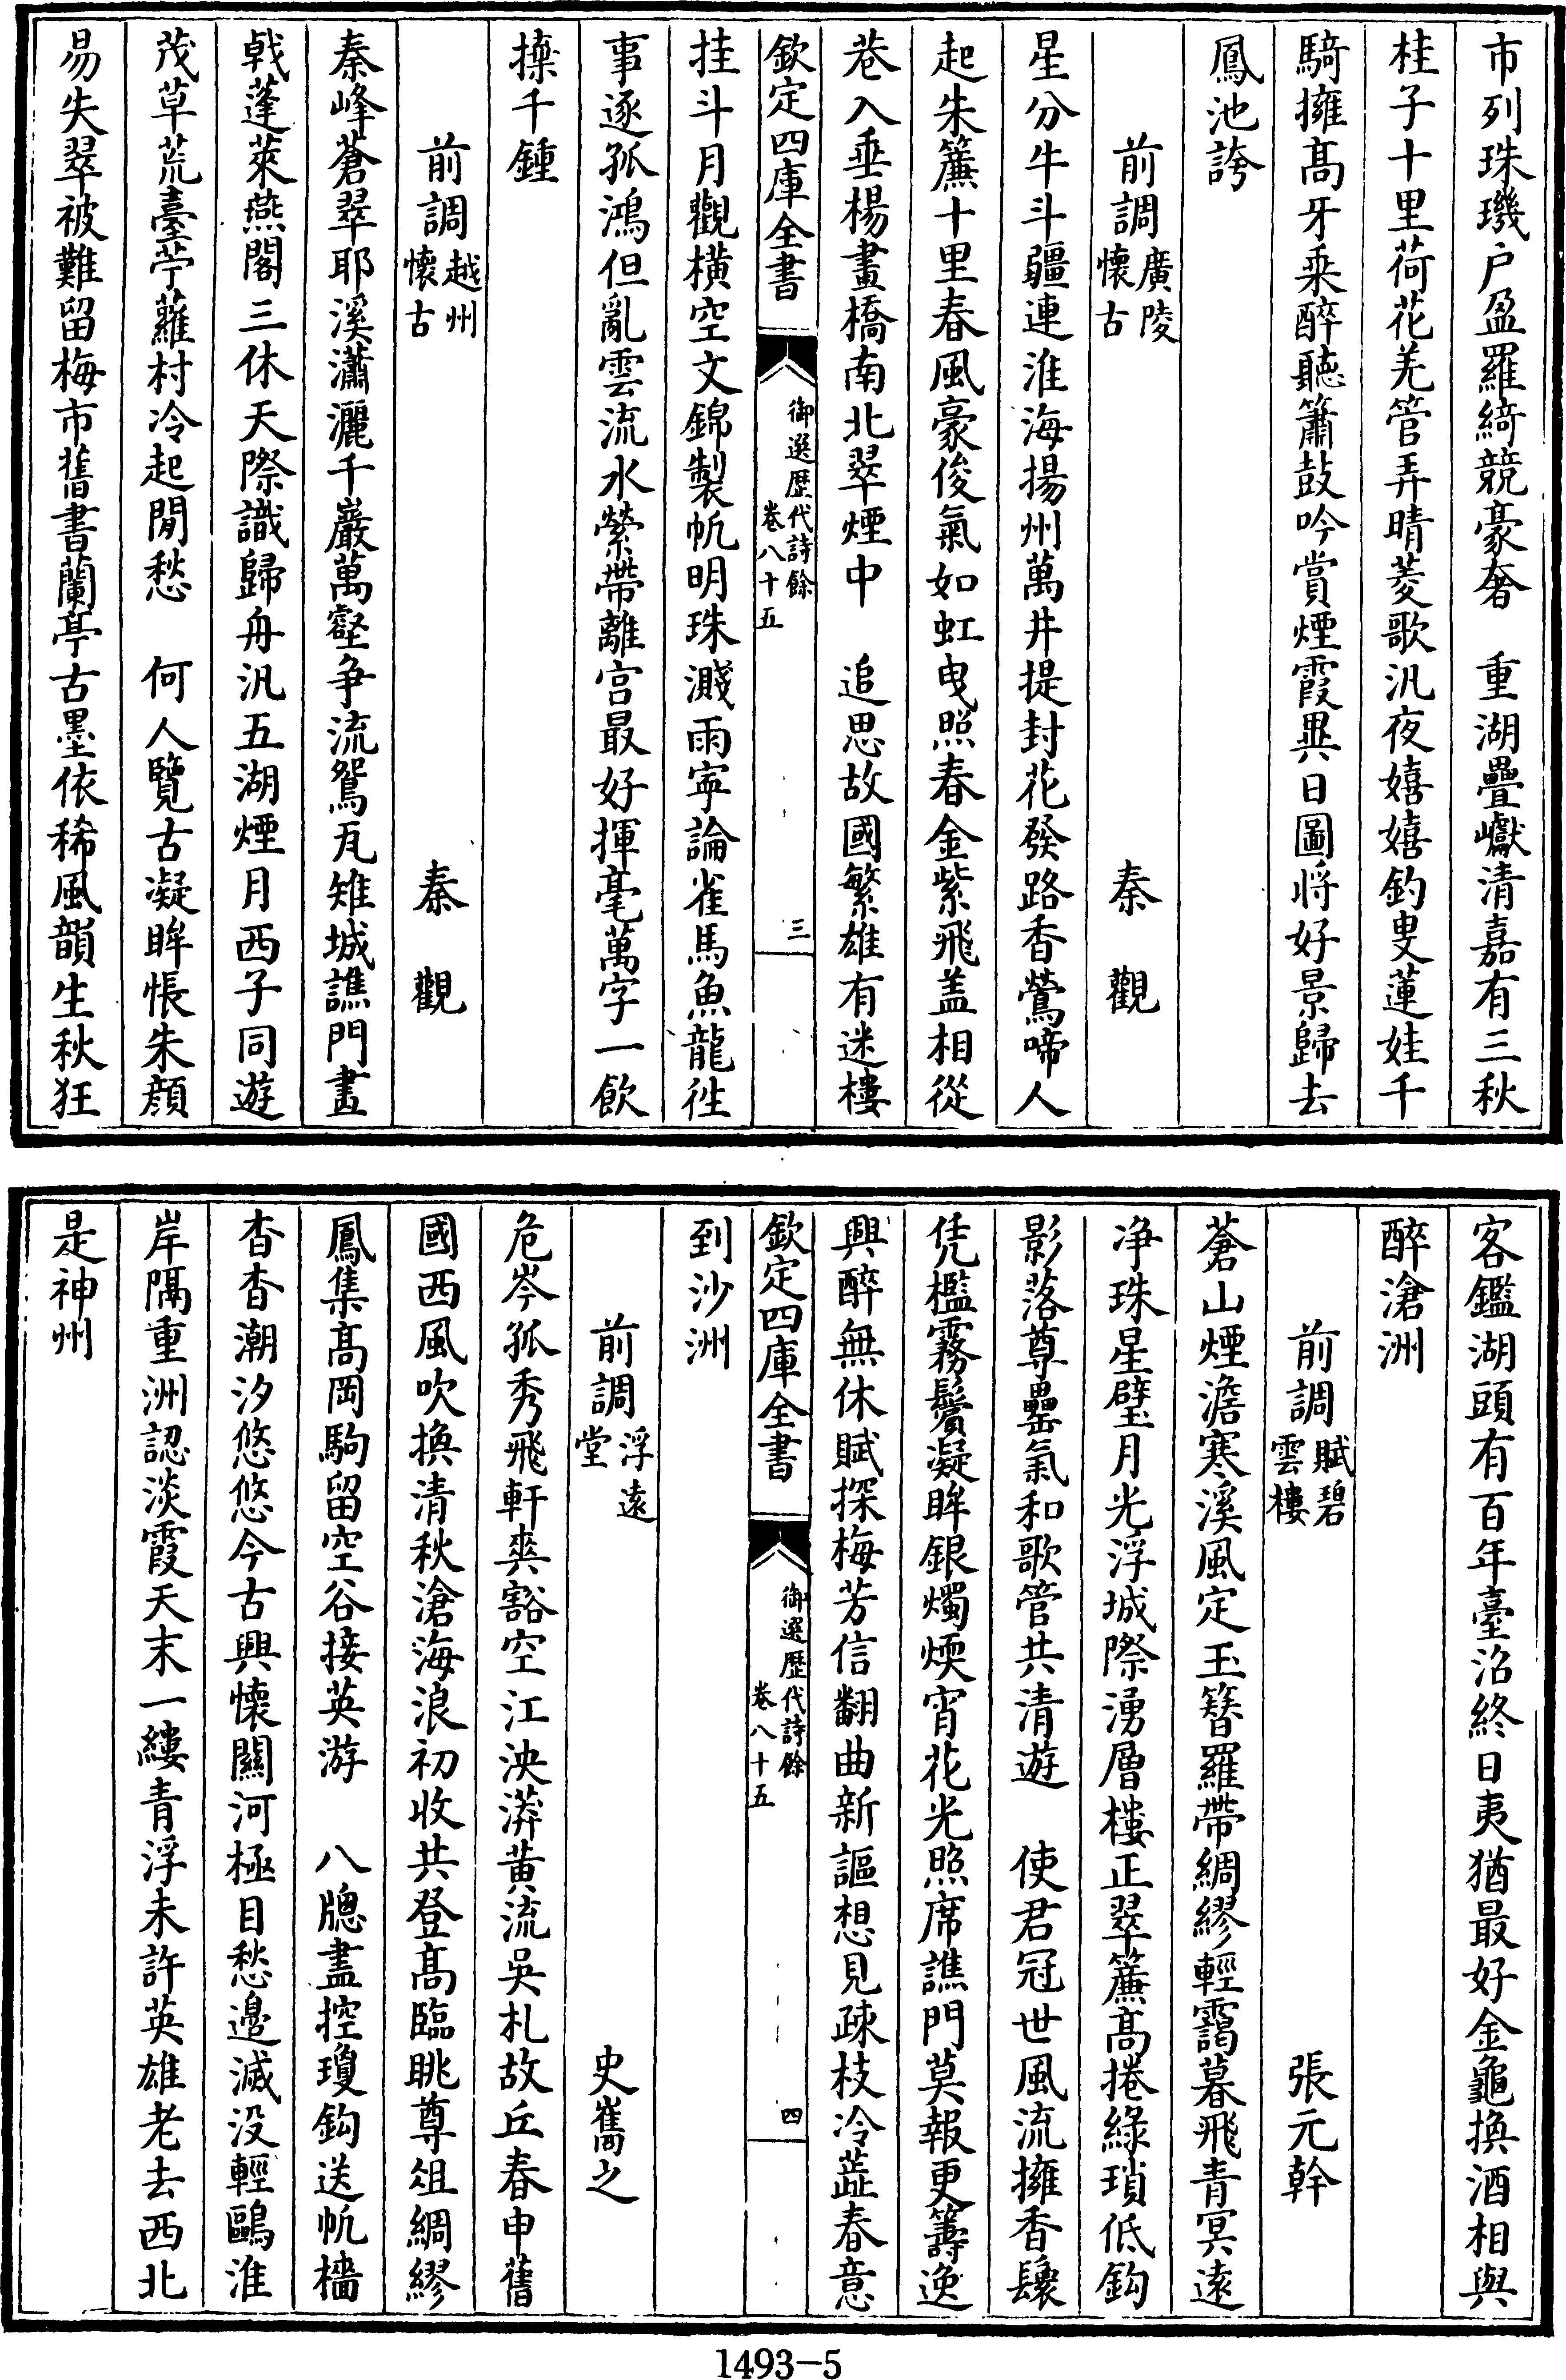 市列珠璣户盈羅綺競豪奢　重湖疊巘清嘉有三秋
桂子十里荷花羌管弄晴菱歌汎夜嬉嬉釣叟蓮娃千
騎擁髙牙乗醉聽簫鼓吟賞煙霞異日圖将好景歸去
鳳池誇
前調廣陵懷古　秦觀
星分牛斗疆連淮海揚州萬井提封花發路香鶯啼人
起朱簾十里春風豪俊氣如虹曳照春金紫飛盖相從
巷入垂楊畫橋南北翠煙中　追思故國繁雄有迷樓
欽定四庫全書　御選歷代詩餘卷八十五　三
挂斗月觀横空文錦製帆明珠濺雨寜論雀馬魚龍徃
事逐孤鴻但亂雲流水縈帶離宫最好揮毫萬字一飲
𢬵千鍾
前調越州懷古　秦觀
秦峰蒼翠耶溪瀟灑千巖萬壑争流鴛瓦雉城譙門畫
戟蓬萊燕閣三休天際識歸舟汎五湖煙月西子同遊
茂草荒臺苧蘿村冷起閒愁　何人覽古凝眸悵朱顔
易失翠被難留梅市舊書蘭亭古墨依稀風韻生秋狂
客鑑湖頭有百年臺沼終日夷猶最好金龜換酒相與
醉滄洲
前調賦碧雲樓　張元幹
蒼山煙澹寒溪風定玉簪羅帶綢繆輕靄暮飛青冥遠
净珠星璧月光浮城際湧層樓正翠簾髙捲綠瑣低鈎
影落尊罍氣和歌管共清遊　使君冠世風流擁香鬟
凭檻霧鬢凝眸銀燭煗宵花光照席譙門莫報更籌逸
興醉無休賦探梅芳信翻曲新謳想見疎枝冷蕋春意
欽定四庫全書　御選歷代詩餘卷八十五　四
到沙洲
前調浮遠堂　史雟之
危岑孤秀飛軒爽豁空江泱漭黄流吳札故丘春申舊
國西風吹換清秋滄海浪初收共登髙臨眺尊俎綢繆
鳳集髙岡駒留空谷接英游　八牕盡控瓊鈎送帆檣
杳杳潮汐悠悠今古興懷關河極目愁邊滅没輕鷗淮
岸隔重洲認淡霞天末一縷青浮未許英雄老去西北
是神州
1493-5